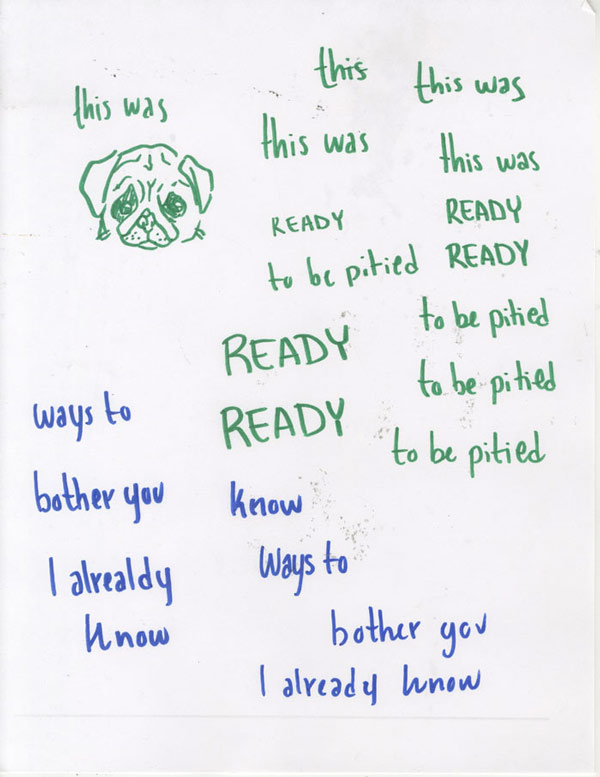 this
this was
this was
this was
this was
READY
READY
to be pitied
READY
to be pitied
READY
to be pitied
READY
to be pitied
ways to
bother you
know
I alrealdy
know
Ways to
bother you
I already know